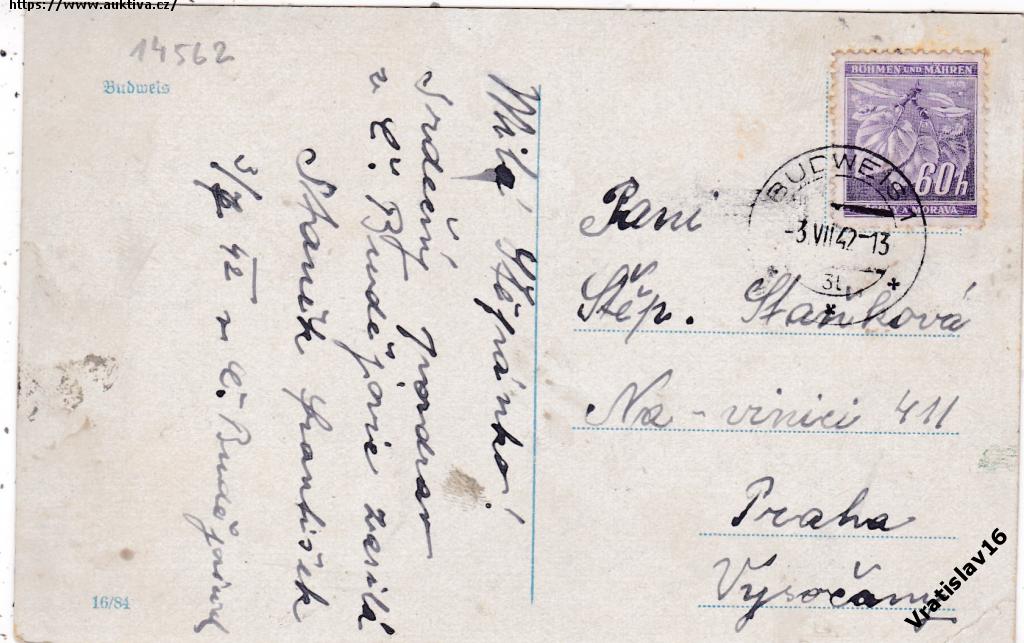 https://www.auktiva.cz/
14562
Budweis
Milá Štěpánko!
Srdečný pozdrav
z Č. Budějovic zasílá
Staněk František
3/7 42 v Č. Budějovicích
16/84
BÖHMEN UND MÄHREN
60h
ČECHY A MORAVA
BUDWEIS 1
-3.VII 42-13
Paní
Štěp. Staňková
Na-vinici 411
Praha
Vysočany
Vratislav16